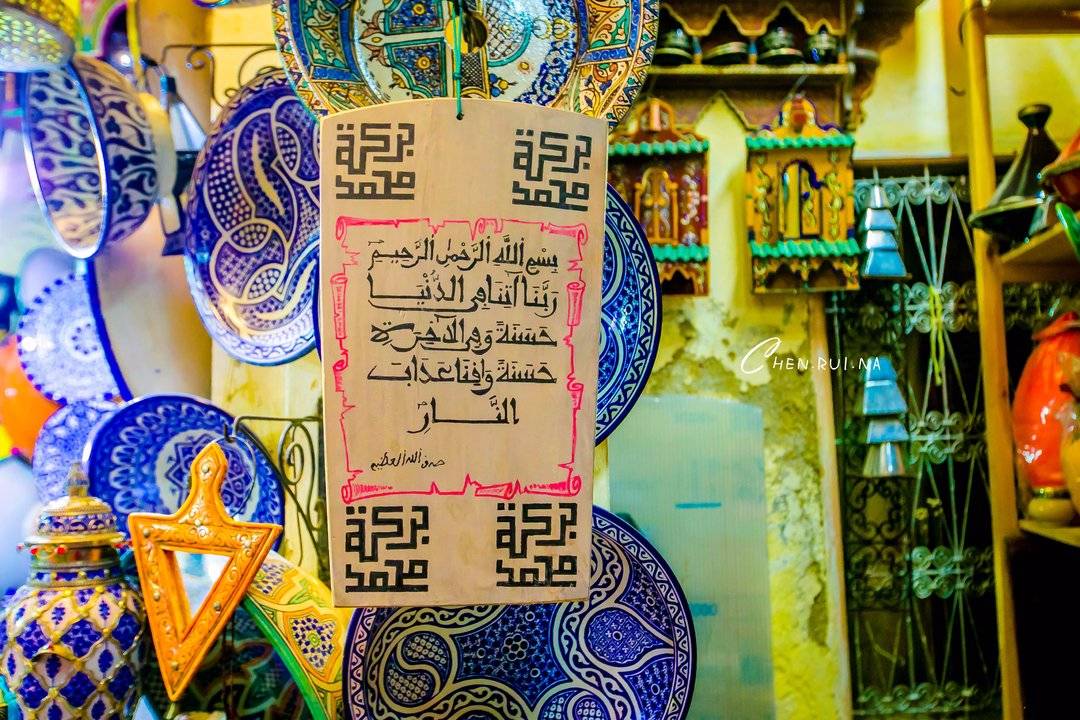 بركة بركة
محمد محمد
بِسْمِ اللَّهِ الرَّحْمٰنِ الرَّحِيمِ
رَبَّنَا آتِنَا فِي الدُّنْيَا
حَسَنَةً وَفِي الآخِرَةِ
حَسَنَةً وَقِنَا عَذَابَ
النَّارِ
صدق الله العظيم
بركة بركة
محمد محمد
CHEN.RUI.NA